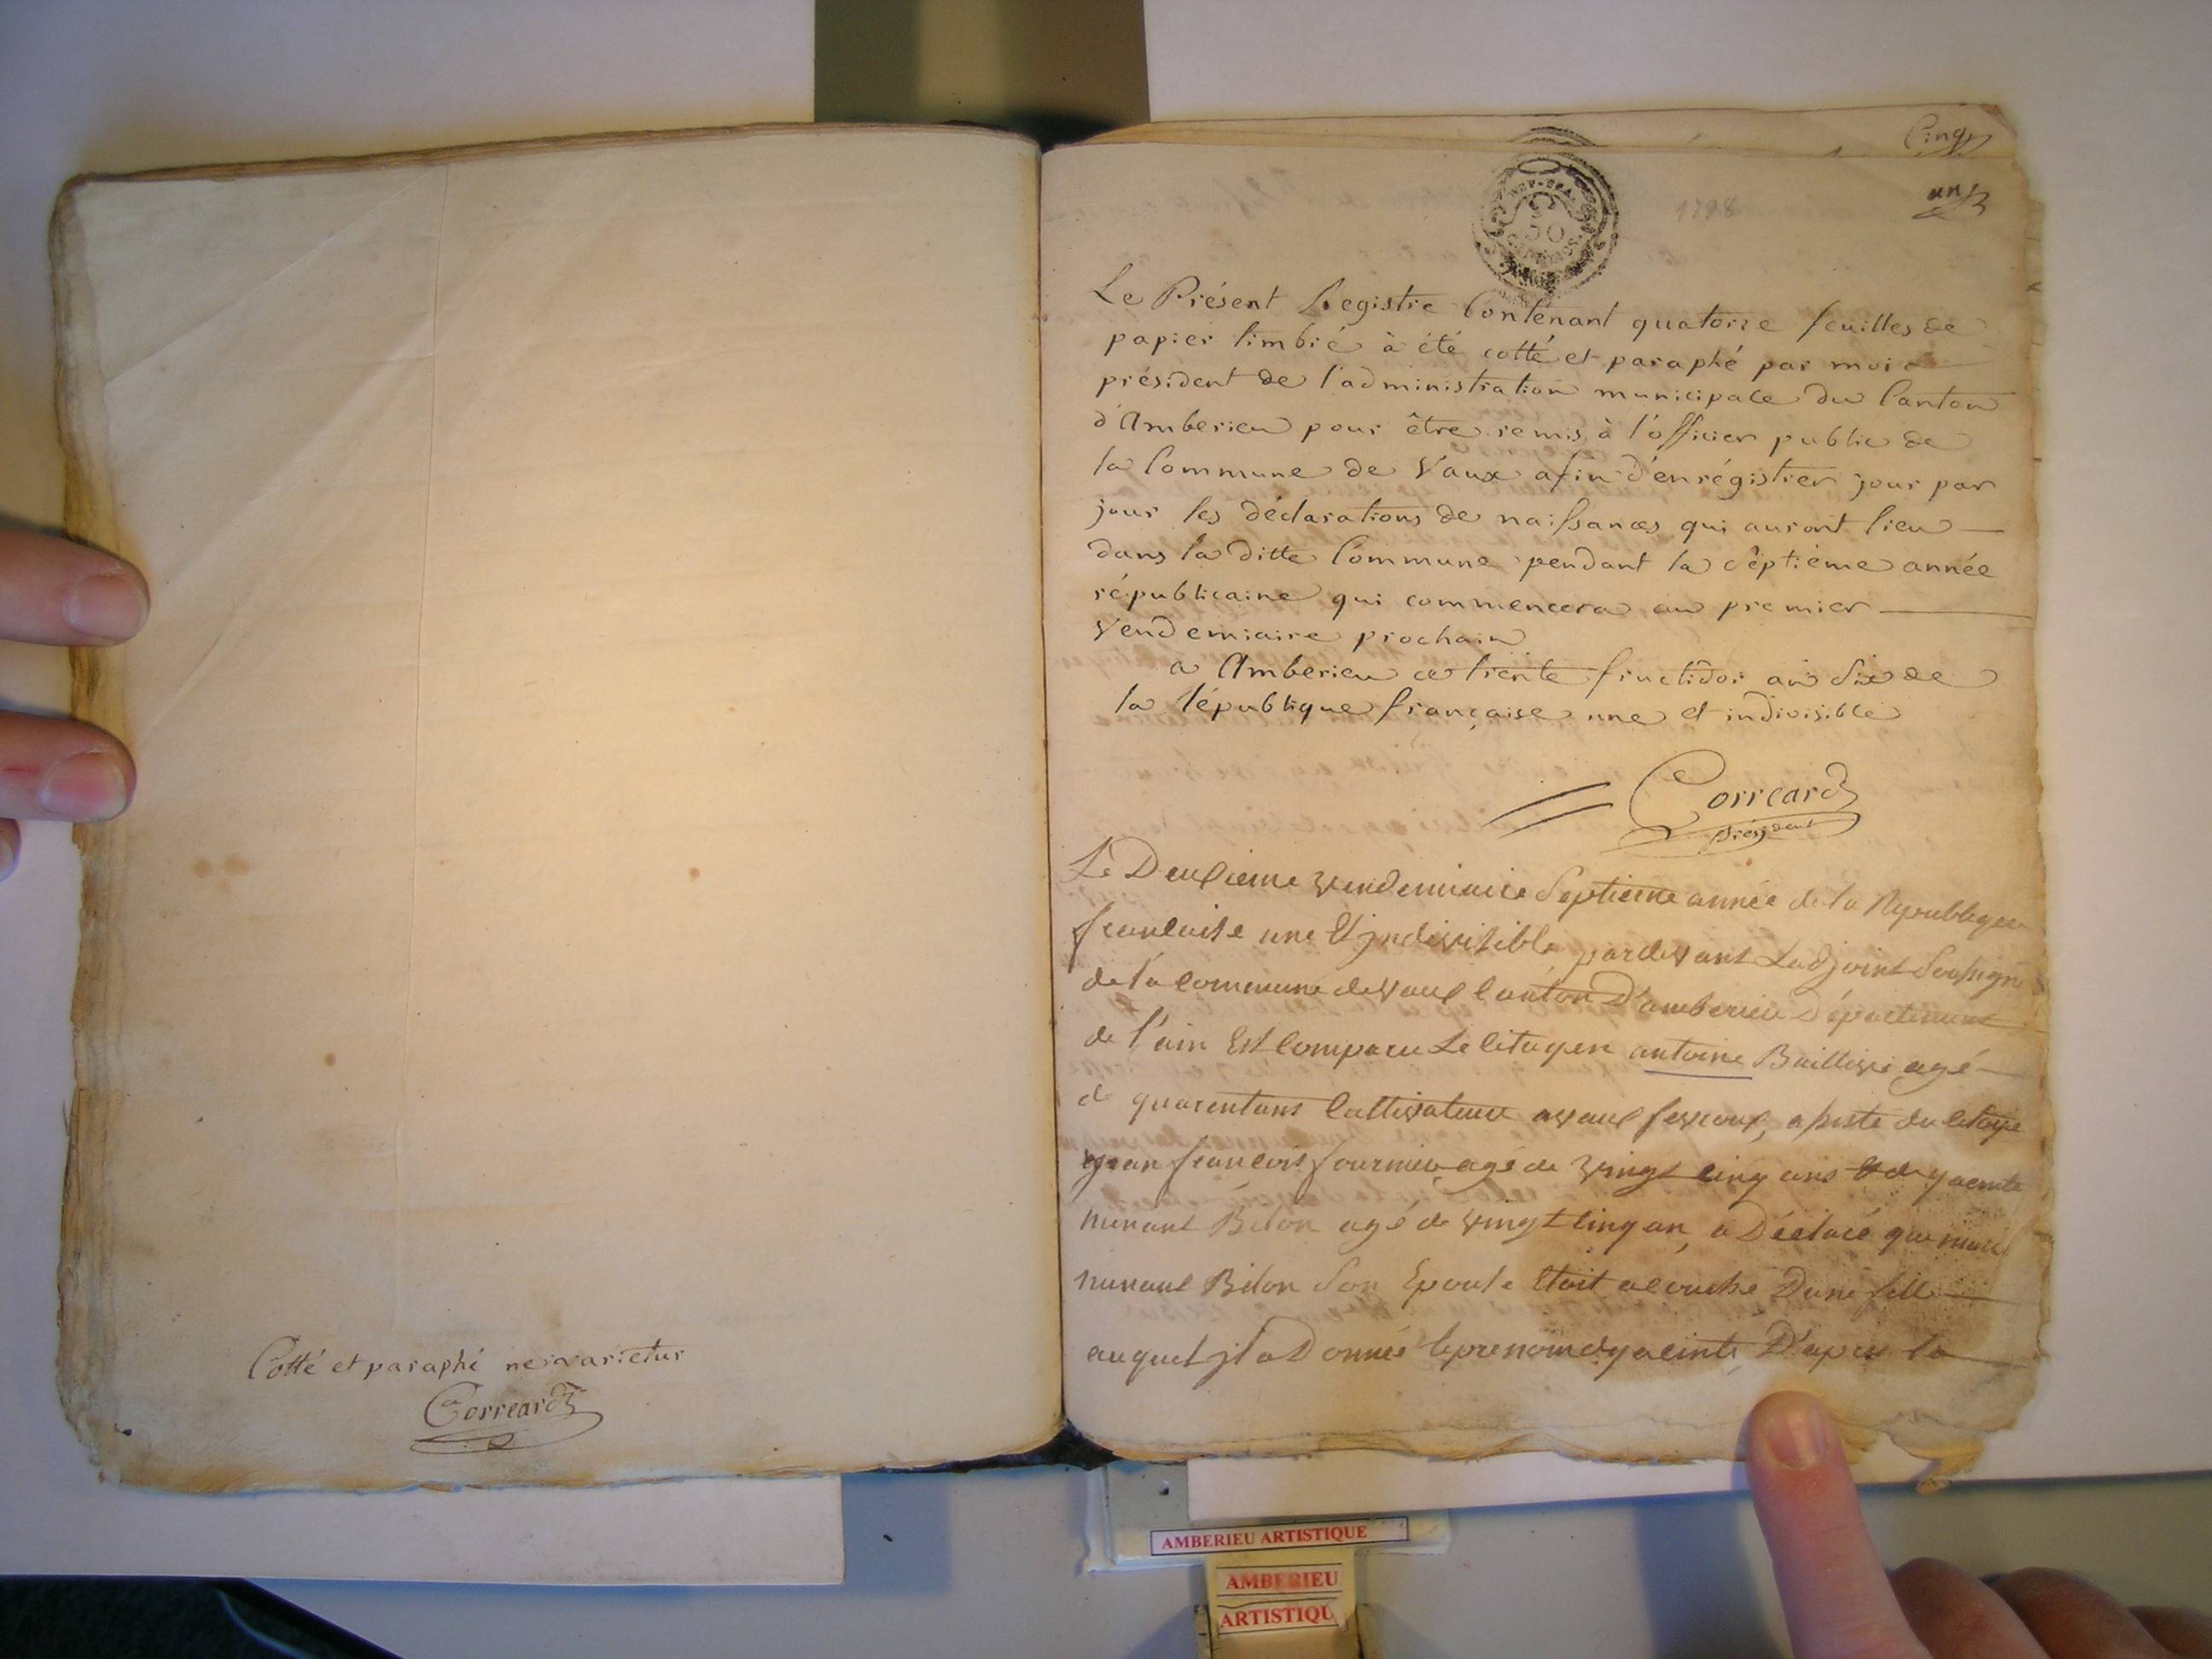 Cotté et paraphé ne varietur
Correard
Cinq
un
1798
50
Le Présent Registre Contenant quatorze feuilles de
papier timbré à été cotté et paraphé par moi
président de l'administration municipale du Canton
d'Amberieu pour être remis à l'officier public de
la Commune de Vaux afin d'enrégistrer jour par
jour les déclarations de naissances qui auront lieu
dans la ditte Commune pendant la septième année
républicaine qui commencera au premier
Vendemiaire prochain
a Amberieu ce trente fructidor an Six de
la république française une et indivisible
Correard
président
Le Deuxieme vendemiaire Septieme année de la Republique
francaise une Et jndivisible pardevant Ladjoint Soussigné
de la commune de vaux Canton D'amberieu Département
de l'ain Est Comparu Le Citoyen antoine Baillivi agé
de quarentans Cultivateur avaux fevroux, assiste du Citoye
jean francois fournier agé de vingt cinq ans Et de yacinte
Bidon agé de vingt Cinq an, a Déclaré que marie
Bidon Son Epouse Etoit acouché Dune fille
auquel jl a Donné le prenom dyacinte D'apres la
AMBERIEU ARTISTIQUE
AMBERIEU
ARTISTIQU